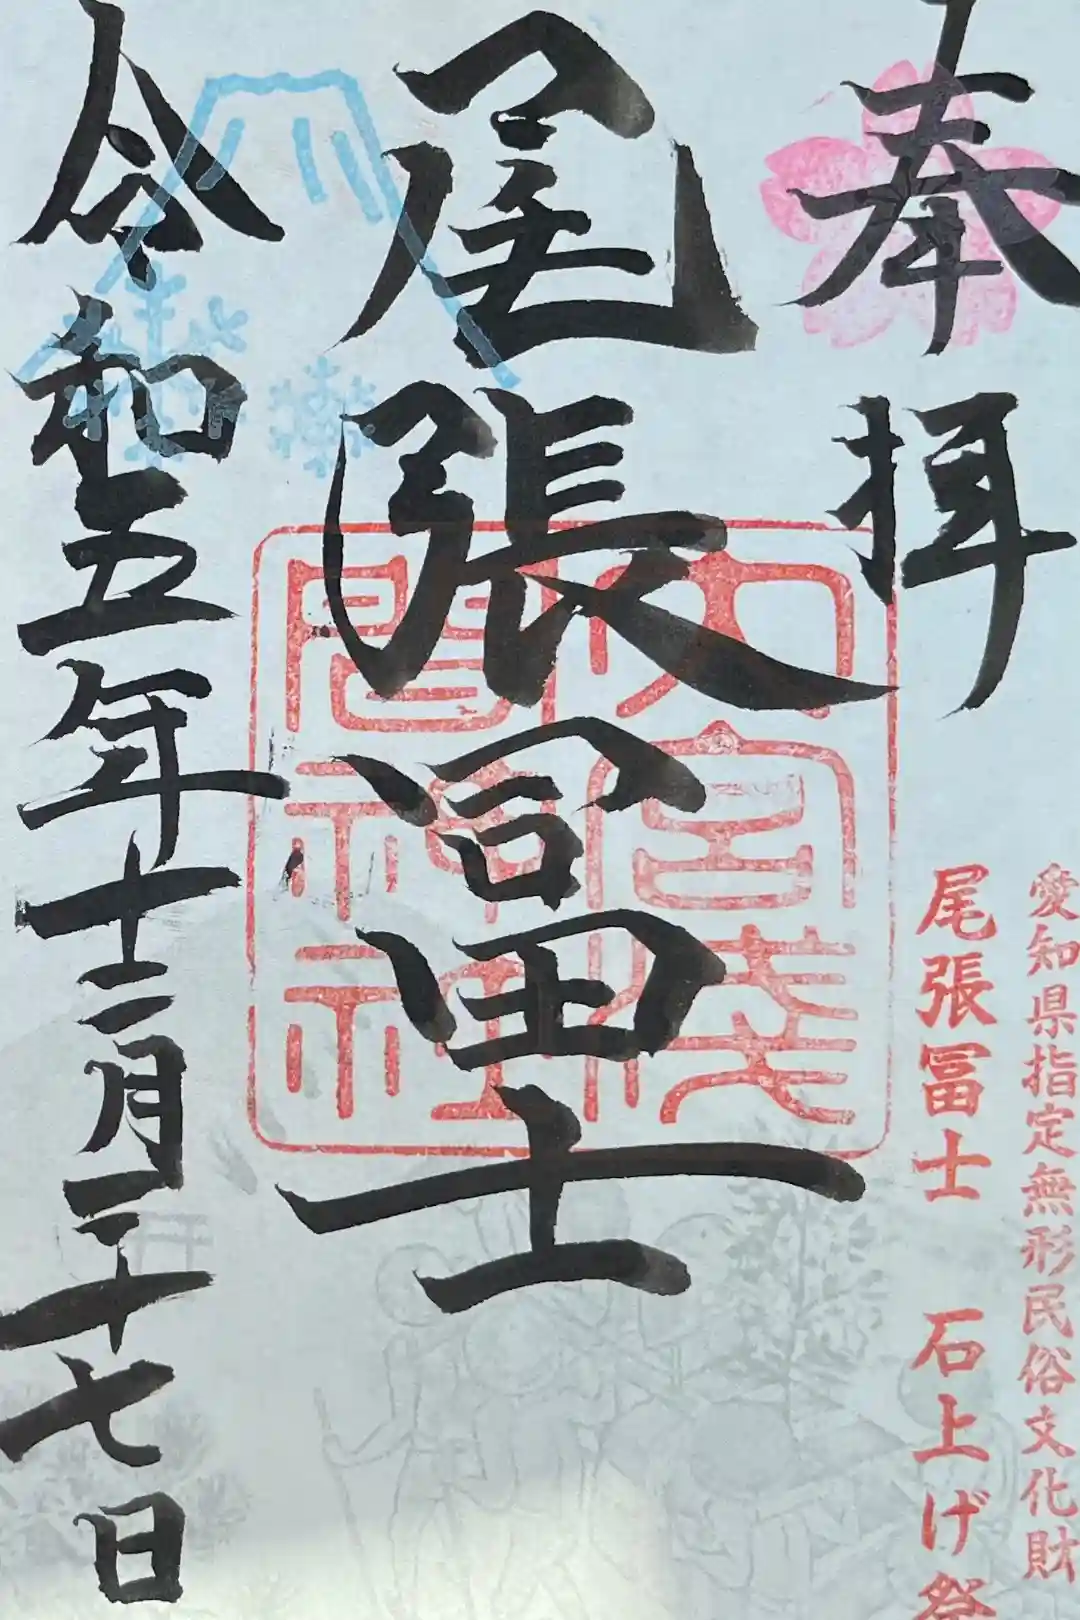 奉拝
愛知県指定無形民俗文化財
尾張冨士 石上げ祭
尾張冨士
大宮浅
間神社
令和五年十二月二十七日